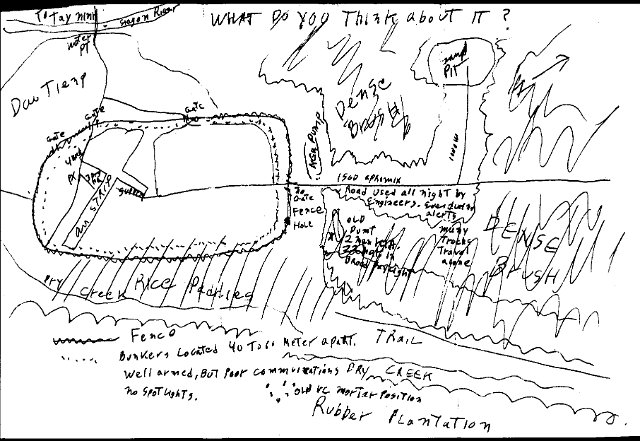 WHAT DO YOU THINK ABOUT IT ?
TO TAY NINH
SAIGON RIVER
WATER
PT
DAU TIENG
GATE
GATE
GATE
DENSE
BRUSH
PIT
AIR STRIP
1500 APROMIX
ROAD USED ALL NIGHT BY
ENGINEERS. EVEN DURING
ALERTS
NO
GATE
FENCE
HOLE
OLD
DUMP
IN
BROAD DAYLIGHT
MANY
TRUCKS
TRAVEL
ALONE
DENSE
BRUSH
DRY
CREEK
RICE PADDIES
FENCE
BUNKERS LOCATED 40 TO 60 METER APART.
WELL ARMED, BUT POOR COMMUNICATIONS
NO SPOTLIGHTS.
TRAIL
DRY CREEK
OLD VC MORTAR POSITION
RUBBER PLANTATION